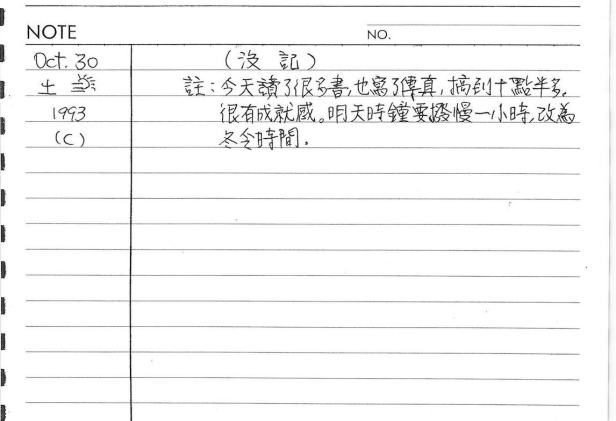 NOTE
NO.
Oct. 30
(沒 記)
土
註：今天讀了很多書,也寫了傳真,搞到十點半多.
1993
很有成就感。明天時鐘要撥慢一小時,改為
(C)
冬令時間.